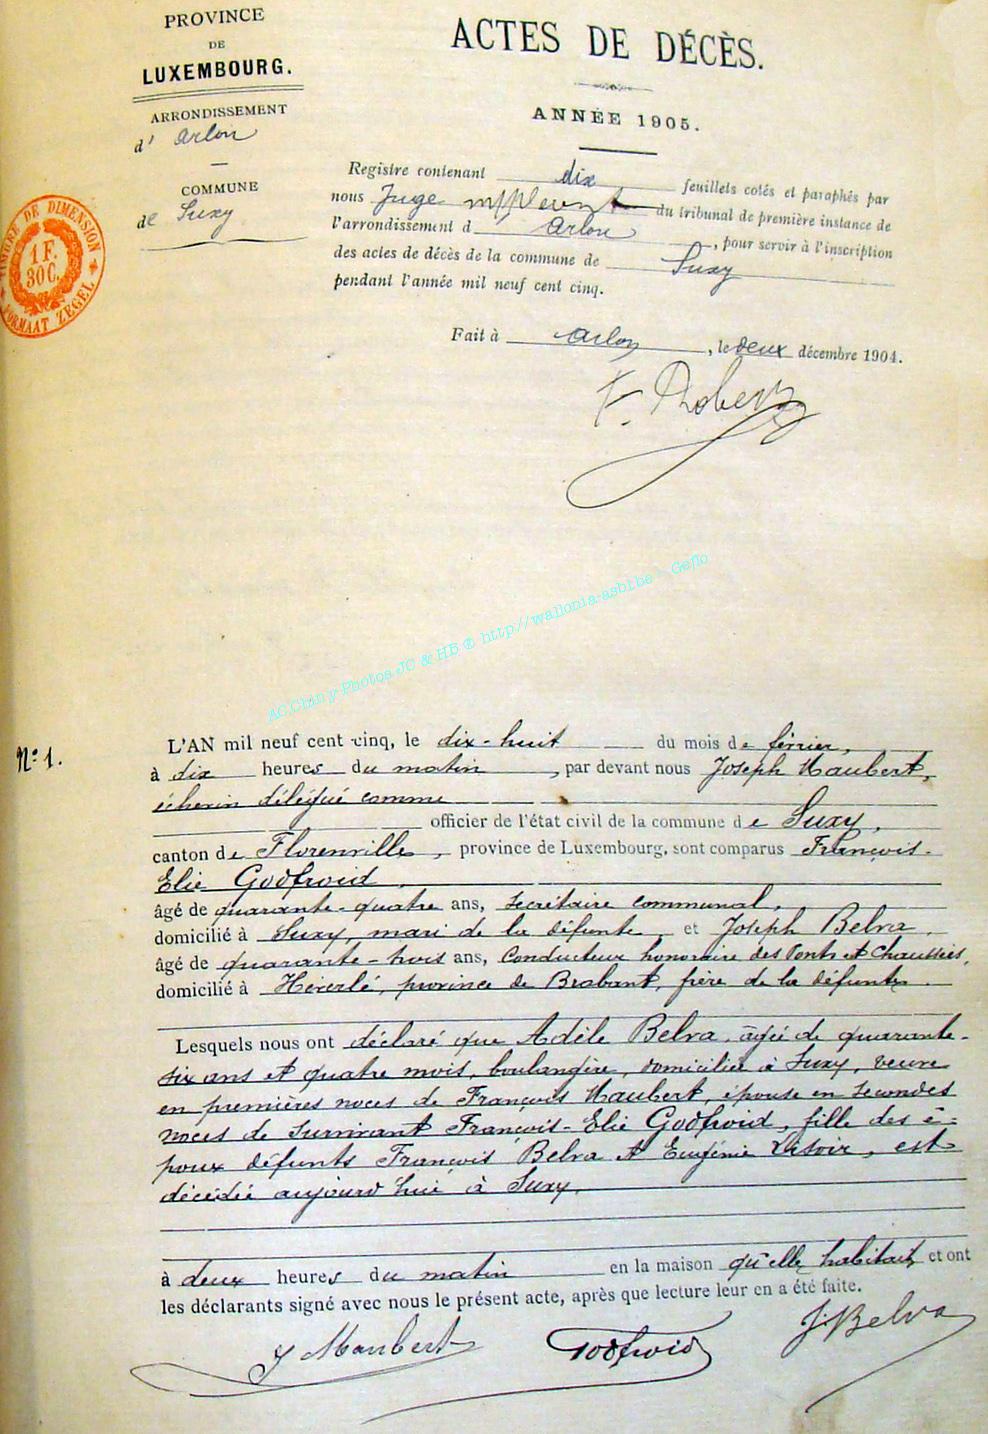 PROVINCE
DE
LUXEMBOURG.
ARRONDISSEMENT
d' Arlon
COMMUNE
de Suxy
TIMBRE DE DIMENSION
1 F.
30 C.
FORMAAT ZEGEL
ACTES DE DÉCÈS.
ANNÉE 1905.
Registre contenant dix feuillets cotés et paraphés par
nous Juge suppléant du tribunal de première instance de
l'arrondissement d Arlon, pour servir à l'inscription
des actes de décès de la commune de Suxy
pendant l'année mil neuf cent cinq.
Fait à Arlon, le deux décembre 1904.
AC.Chiny-Photos JC & HB ® http//wallonia-asbl.be - Geflo
N° 1.
L'AN mil neuf cent cinq, le dix-huit du mois de février,
à dix heures du matin, par devant nous Joseph Maubert,
échevin délégué comme
officier de l'état civil de la commune de Suxy,
canton de Florenville, province de Luxembourg, sont comparus François-
Elie Godfroid,
âgé de quarante-quatre ans, secrétaire communal,
domicilié à Suxy, mari de la défunte et Joseph Belva,
âgé de quarante-trois ans, Conducteur honoraire des Ponts et Chaussées,
domicilié à Héverlé, province de Brabant, frère de la défunte.
Lesquels nous ont déclaré que Adèle Belva, âgée de quarante-
six ans et quatre mois, boulangère, domiciliée à Suxy, veuve
en premières noces de François Maubert, épouse en secondes
noces de survivant François-Elie Godfroid, fille des é-
poux défunts François Belva et Eugénie Lesoir, est
décédée aujourd'hui à Suxy,
à deux heures du matin en la maison qu'elle habitait, et ont
les déclarants signé avec nous le présent acte, après que lecture leur en a été faite.
J Maubert Godfroid J. Belva